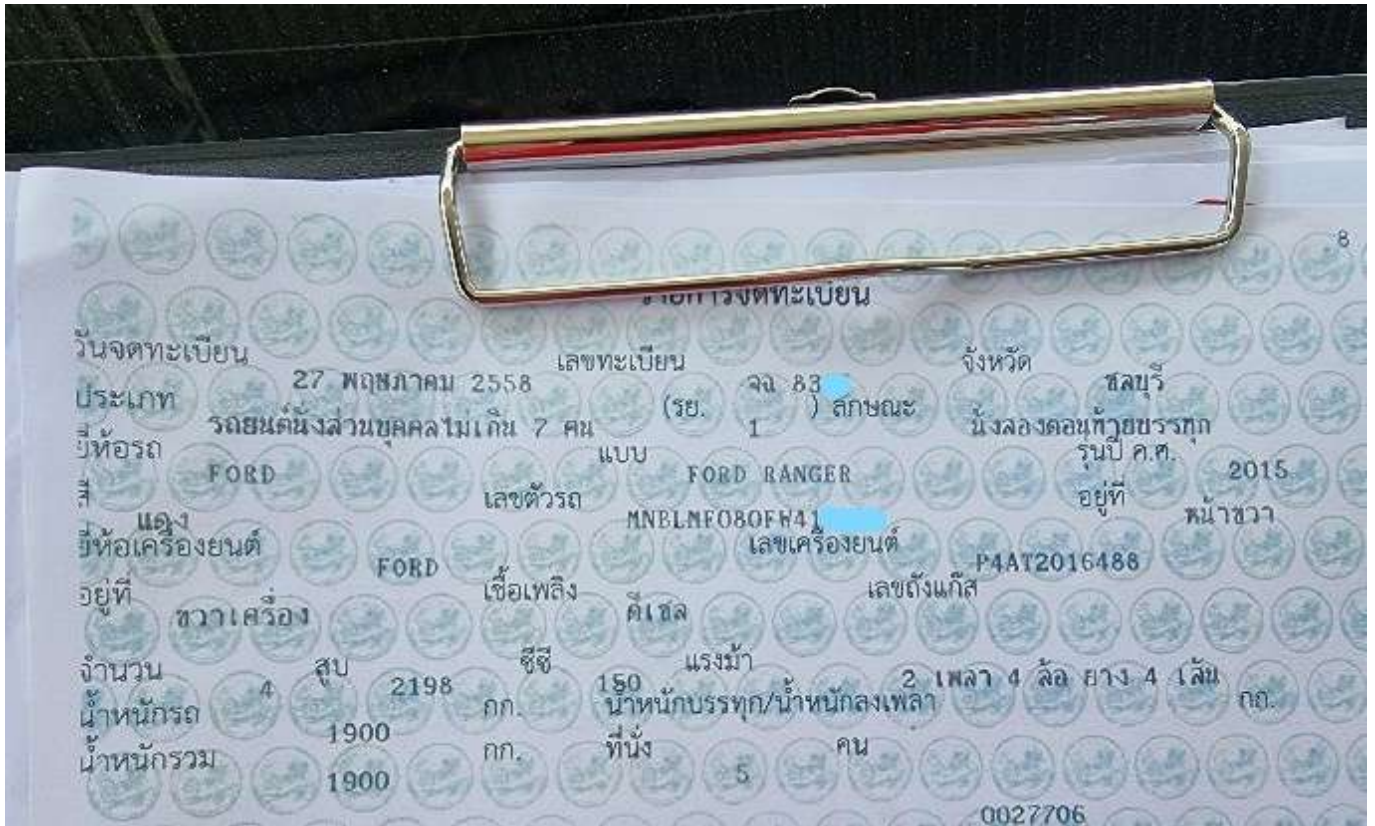 8
รายการจดทะเบียน
วันจดทะเบียน 27 พฤษภาคม 2558 เลขทะเบียน จฉ 83 จังหวัด ชลบุรี
ประเภท รถยนต์นั่งส่วนบุคคลไม่เกิน 7 คน (รย. 1 ) ลักษณะ นั่งสองตอนท้ายบรรทุก
ยี่ห้อรถ FORD แบบ FORD RANGER รุ่นปี ค.ศ. 2015
สี แดง เลขตัวรถ MNBLMFO80FW41 อยู่ที่ หน้าขวา
ยี่ห้อเครื่องยนต์ FORD เลขเครื่องยนต์ P4AT2016488
อยู่ที่ ขวาเครื่อง เชื้อเพลิง ดีเซล เลขถังแก๊ส
จำนวน 4 สูบ 2198 ซีซี 150 แรงม้า 2 เพลา 4 ล้อ ยาง 4 เส้น
น้ำหนักรถ 1900 กก. น้ำหนักบรรทุก/น้ำหนักลงเพลา กก.
น้ำหนักรวม 1900 กก. ที่นั่ง 5 คน
0027706